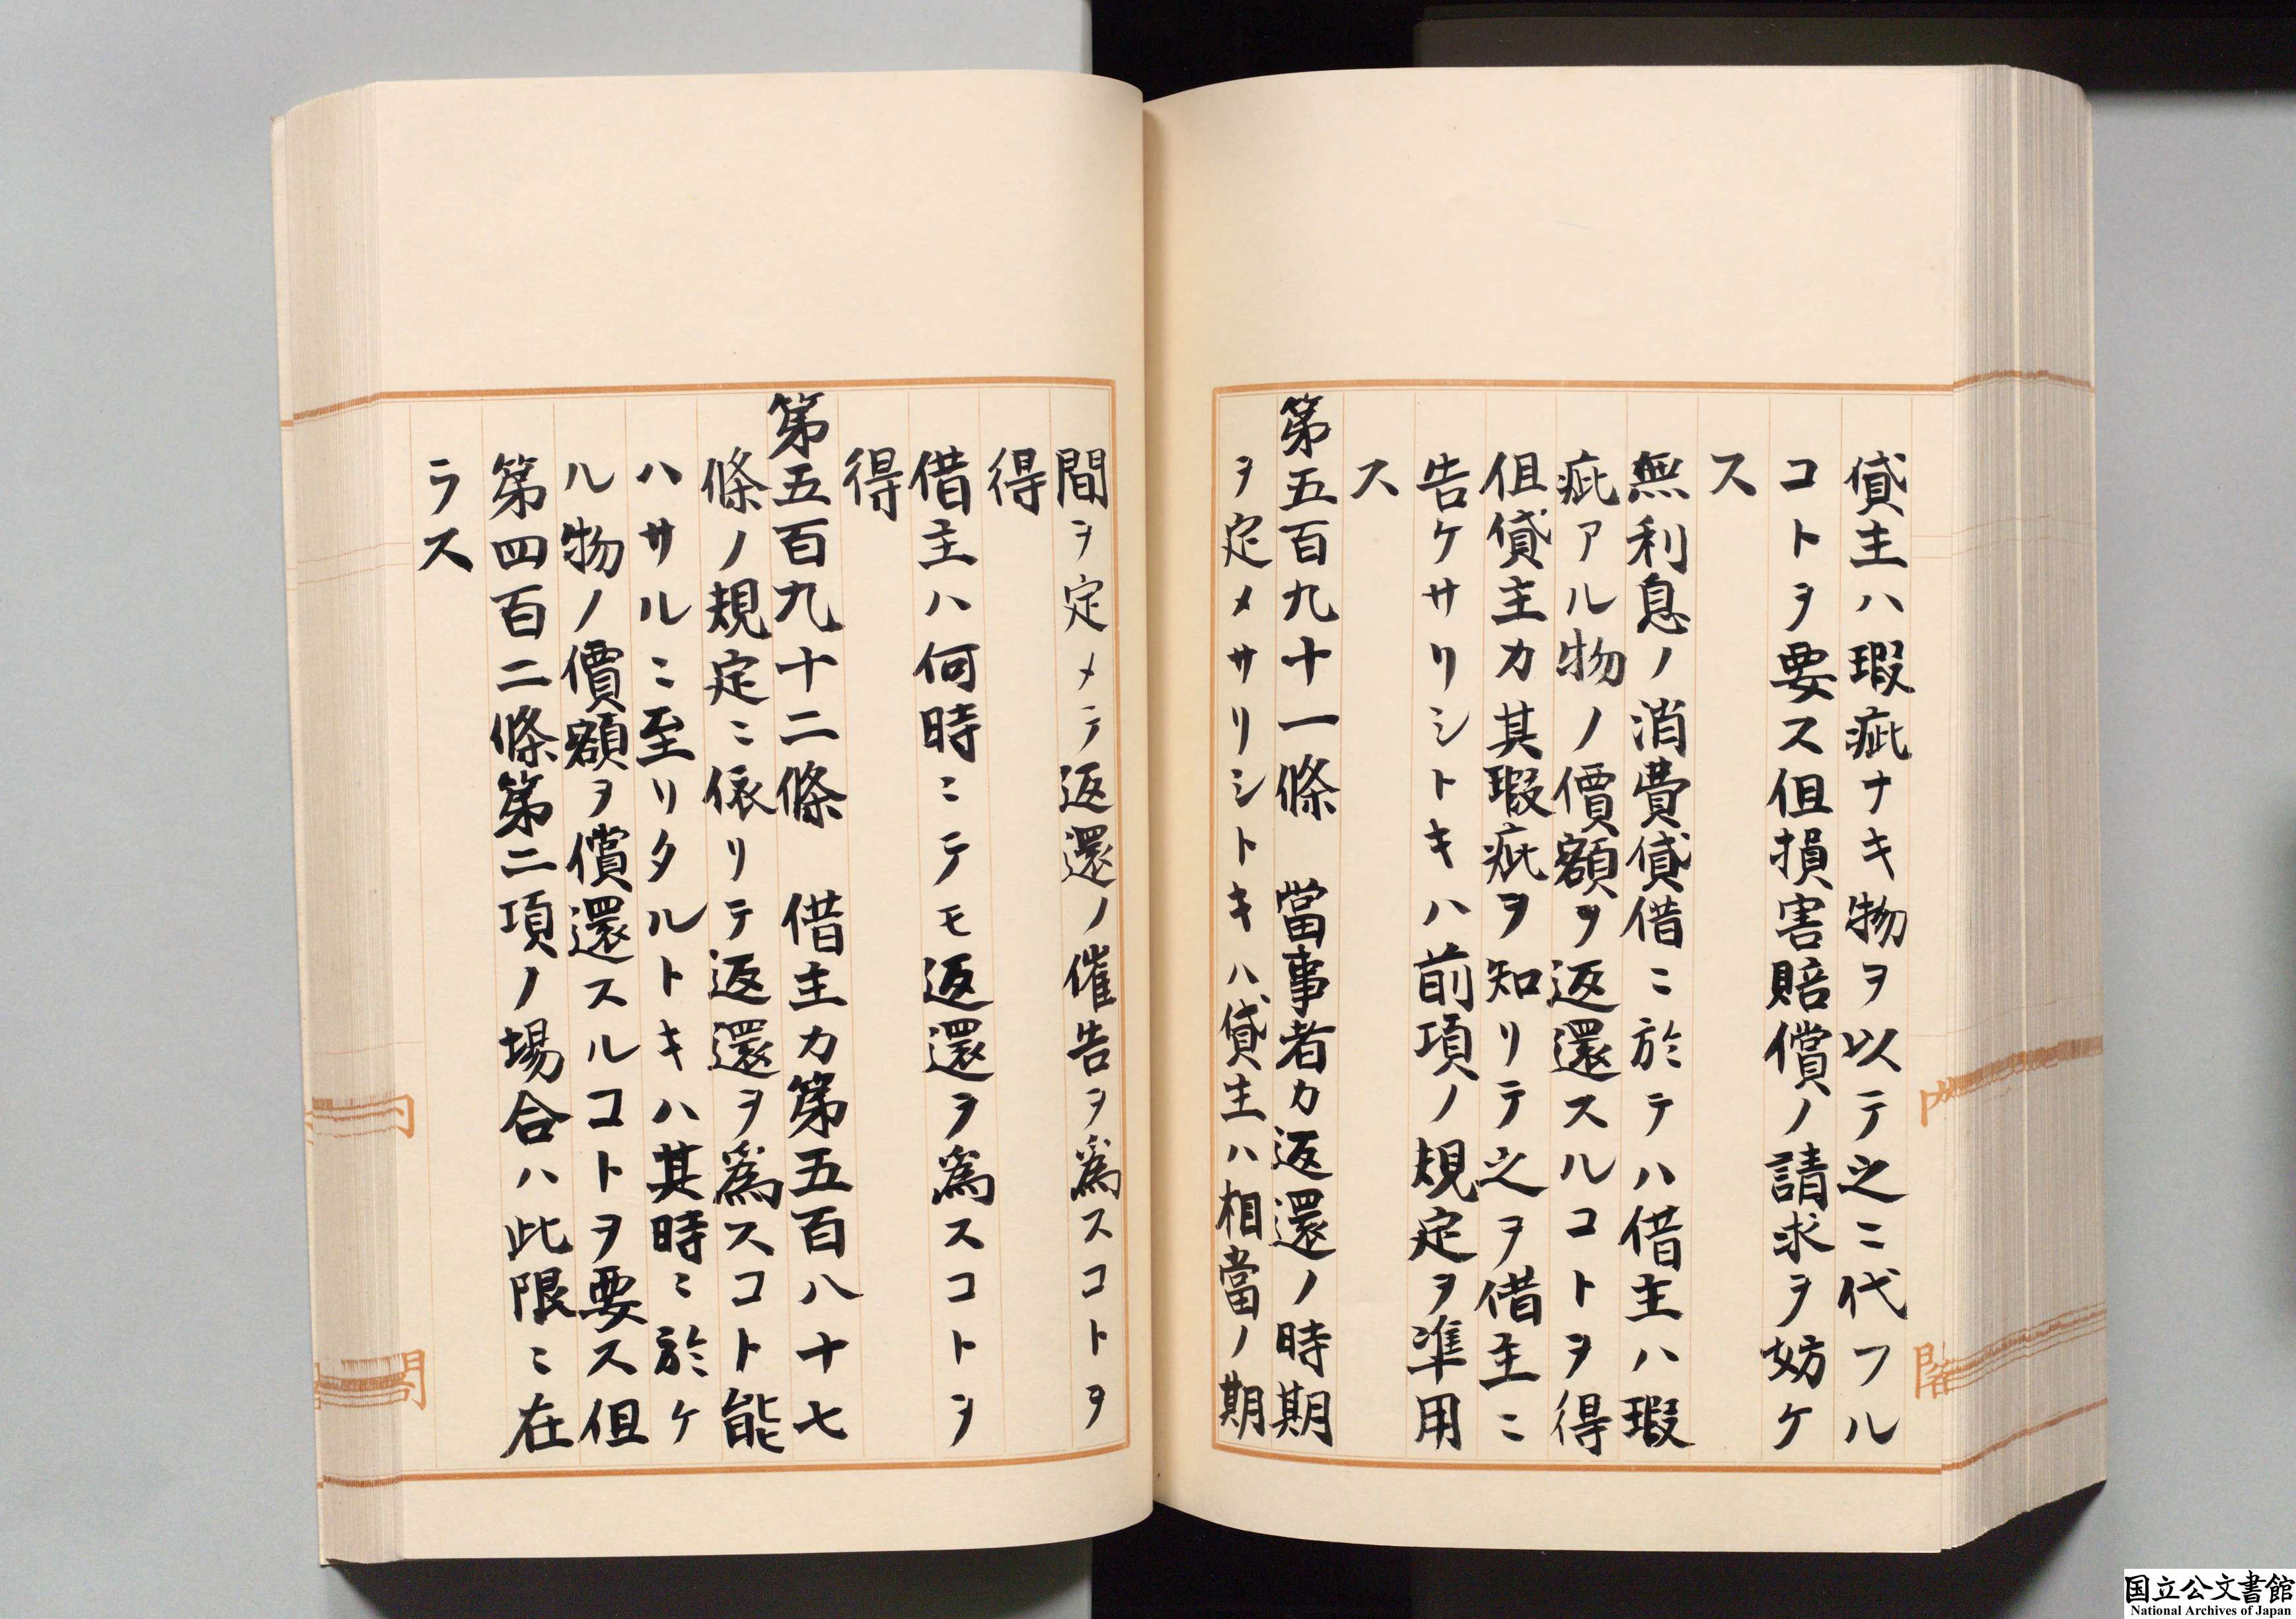 貸主ハ瑕疵ナキ物ヲ以テ之ニ代フル
コトヲ要ス但損害賠償ノ請求ヲ妨ケ
ス
無利息ノ消費貸借ニ於テハ借主ハ瑕
疵アル物ノ價額ヲ返還スルコトヲ得
但貸主カ其瑕疵ヲ知リテ之ヲ借主ニ
告ケサリシトキハ前項ノ規定ヲ準用
ス
第五百九十一條　當事者カ返還ノ時期
ヲ定メサリシトキハ貸主ハ相當ノ期
間ヲ定メテ返還ノ催告ヲ爲スコトヲ
得
借主ハ何時ニテモ返還ヲ爲スコトヲ
得
第五百九十二條　借主カ第五百八十七
條ノ規定ニ依リテ返還ヲ爲スコト能
ハサルニ至リタルトキハ其時ニ於ケ
ル物ノ價額ヲ償還スルコトヲ要ス但
第四百二條第二項ノ場合ハ此限ニ在
ラス
内閣
国立公文書館
National Archives of Japan